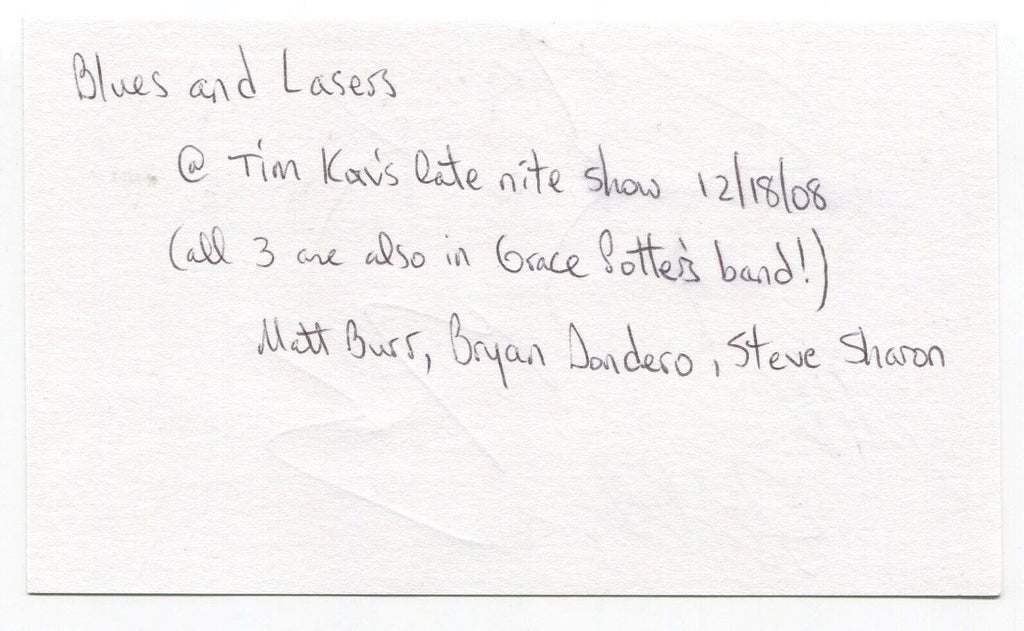 Blues and Lasers
@ Tim Kav's late nite show 12/18/08
(all 3 are also in Grace Potter's band!)
Matt Burr, Bryan Dondero, Steve Sharon